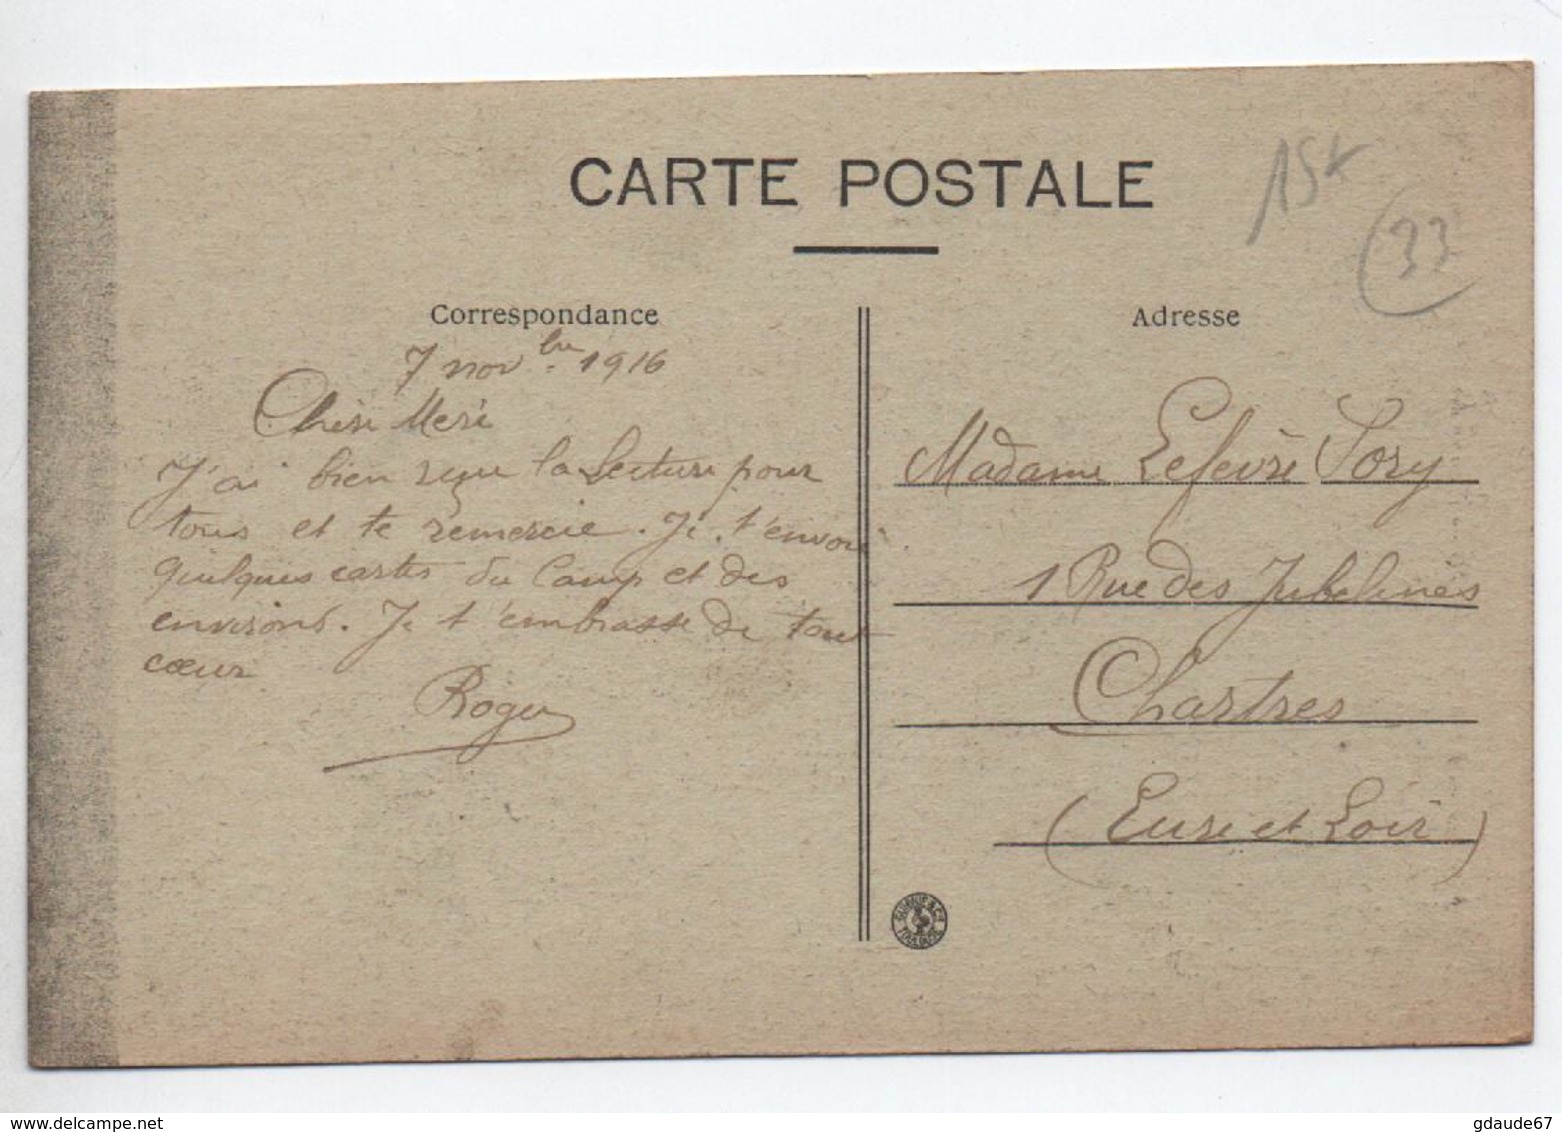 CARTE POSTALE
15€
33
Correspondance
7 nov bre 1916
Chère Mère
J'ai bien reçu la lecture pour
tous et te remercie. Je t'envoie
quelques cartes du Camp et des
environs. Je t'embrasse de tout
cœur
Roger
Adresse
Madame Lefèvre Sory
1 Rue des Jubelines
Chartres
(Eure et Loir)
delcampe.net
gdaude67